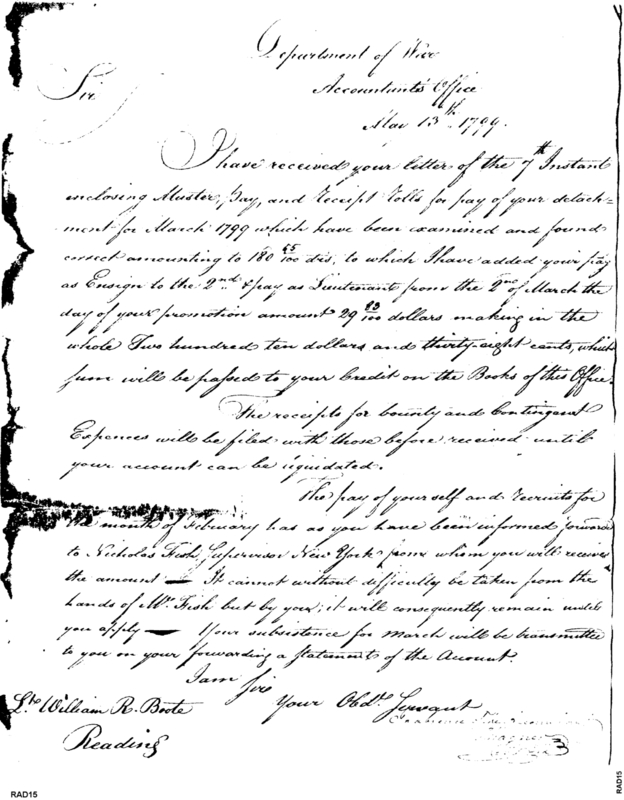 Department of War
Accountant's Office
May 13th 1799.
Sir
I have received your letter of the 7th Instant
enclosing Muster, Pay, and receipt Rolls for pay of your detach-
ment for March 1799 which have been examined and found
correct amounting to 180 45/100 dls. to which I have added your pay
as Ensign to the 2nd & pay as Lieutenant from the 2nd of March the
day of your promotion amount 29 93/100 dollars making in the
whole Two hundred ten dollars and thirty-eight cents, which
sum will be passed to your Credit on the Books of this Office.
The receipts for bounty and Contingent
Expences will be filed with those before received until
your account can be liquidated.
The pay of yourself and recruits for
the month of February has as you have been informed
to Nicholas Fish Supervisor New York from whom you will receive
the amount — It cannot without difficulty be taken from the
hands of Mr. Fish but by you; it will consequently remain until
you apply — Your subsistence for March will be transmitte
to you on your forwarding a Statement of the Account.
I am Sir
Your Obdt. Servant
Lt. William R. Boote
Reading
RAD15
RAD15